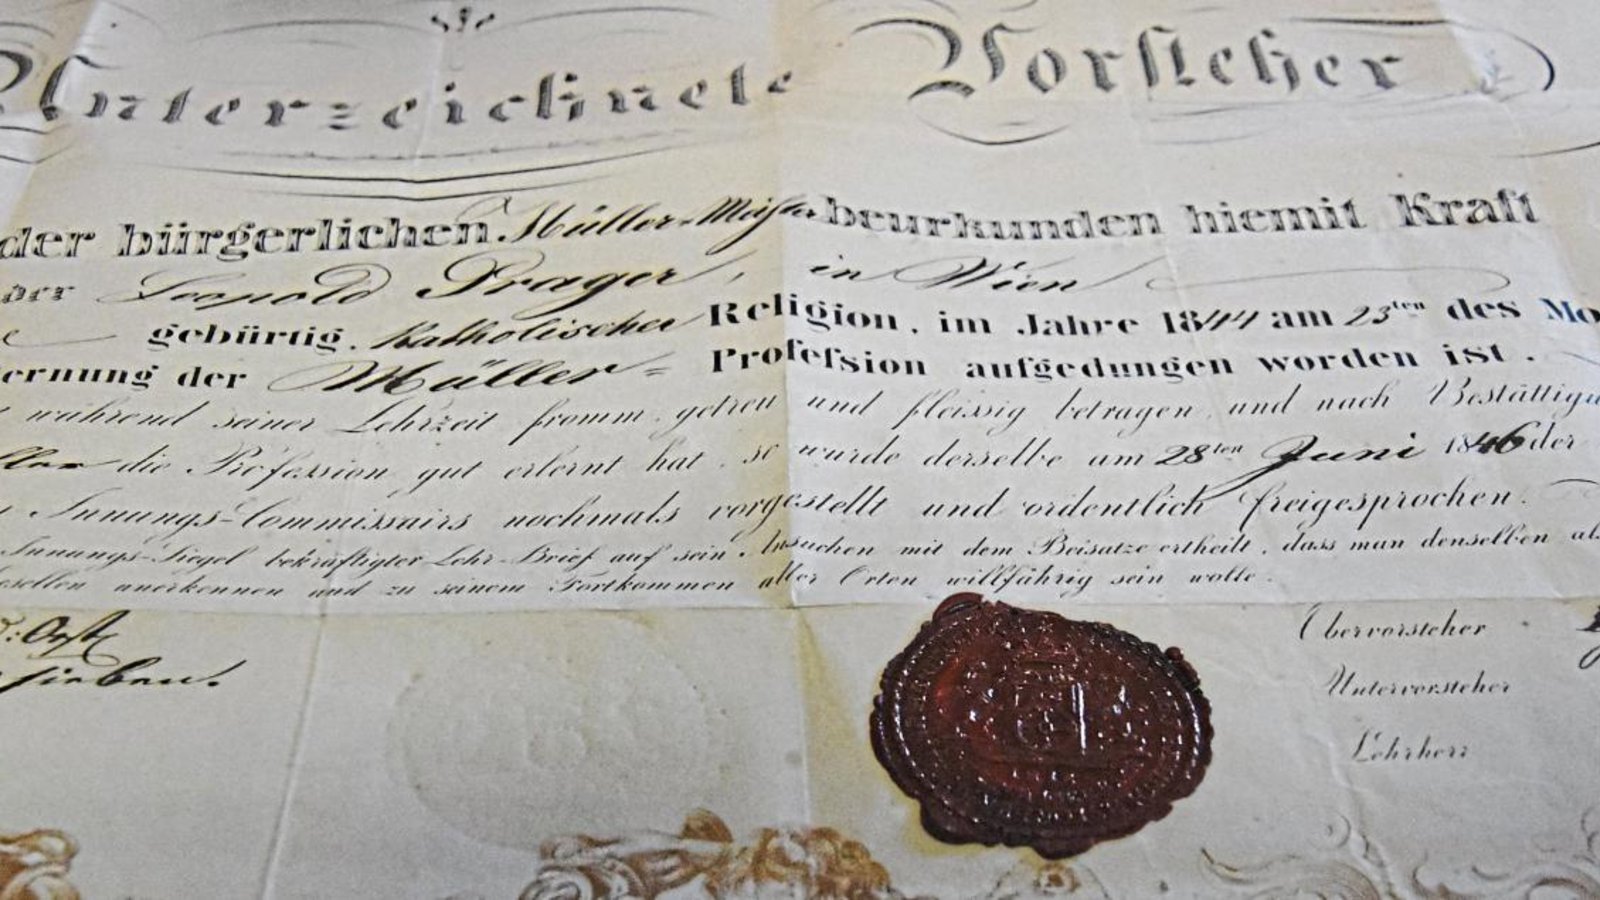 Unterzeichnete Vorsteher
der bürgerlichen Müller-Meister beurkunden hiemit Kraft
Leopold Prager, in Wien
gebürtig, Katholischer Religion, im Jahre 1844 am 23ten des Mo
ernung der Müller= Profession aufgedungen worden ist.
während seiner Lehrzeit fromm, getreu und fleissig betragen, und nach Bestättigu
die Profession gut erlernt hat, so wurde derselbe am 28ten Juni 1846 der
Innungs-Commissairs nochmals vorgestellt und ordentlich freigesprochen.
Innungs-Siegel bekräftigter Lehr-Brief auf sein Ansuchen mit dem Beisatze ertheilt, dass man denselben al
esellen anerkennen und zu seinem Fortkommen aller Orten willfährig sein wolle.
Obervorsteher
Untervorsteher
Lehrherr